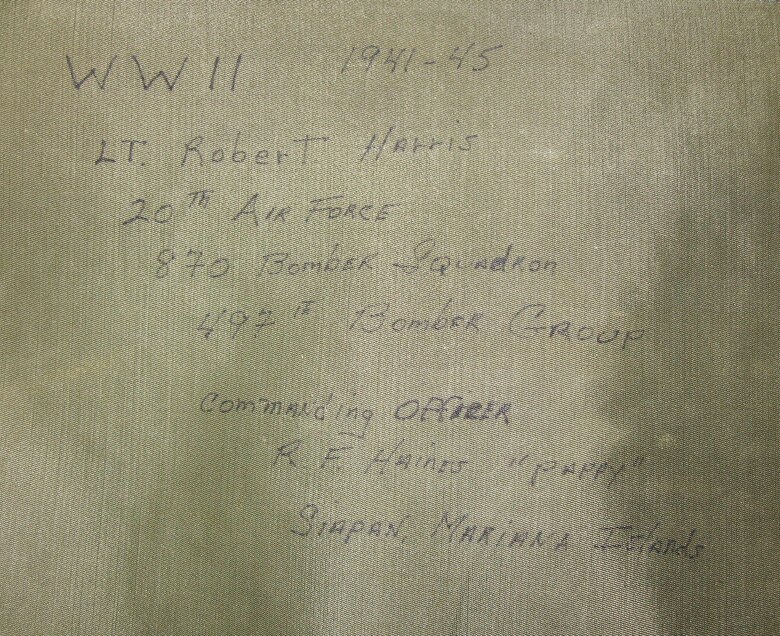 WWII 1941-45
LT. Robert Harris
20TH AIR FORCE
870 Bomber Squadron
497TH Bomber Group
Commanding OFFICER
R. F. Haines "PAPPY"
Siapan, MARIANA Islands